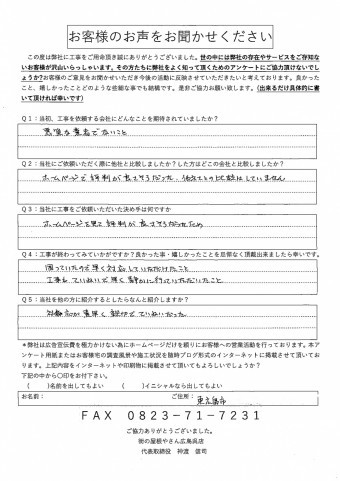 お客様のお声をお聞かせください
この度は弊社に工事をご用命頂き誠にありがとうございました。世の中には弊社の存在やサービスをご存知な
いお客様が沢山いらっしゃいます。その方たちに弊社をよく知って頂くためのアンケートにご協力頂けないでし
ょうか？お客様のご意見をお聞かせいただき今後の活動に反映させていただきたいと考えております。良かった
こと、嬉しかったことどのような些細な事でも結構です。是非ご協力お願い致します。(出来るだけ具体的に書
いて頂ければ幸いです)
Q１：当初、工事を依頼する会社にどんなことを期待されていましたか？
悪質な業者でないこと
Q２：当社にご依頼いただく際に他社と比較しましたか？した方はどこの会社と比較しましたか？
ホームページで評判が良さそうだった、他社との比較はしていません
Q３：当社に工事をご依頼いただいた決め手は何ですか
ホームページを見て評判が良さそうだったため
Q４：工事が終わってみていかがですか？良かった事・嬉しかったことを忌憚なく頂戴出来ましたら幸いです。
困っていたので早く対応していただけたこと
工事もていねいで早く静かに行っていただいたこと
Q５：当社を他の方に紹介するとしたらなんと紹介しますか？
対応が素早く親切でていねいだった
＊弊社は広告宣伝費を極力かけない為にホームページだけを頼りにお客様への営業活動を行っております。本ア
ンケート用紙またはお客様宅の調査風景や施工状況を随時ブログ形式のインターネットに掲載させて頂いてお
ります。上記内容をインターネットや印刷物に掲載させて頂いてもよろしいでしょうか？
下記の中から〇印をお付け下さい。
( )名前を出してもよい ( )イニシャルなら出してもよい
お名前： ご住所： 東広島市
FAX 0823-71-7231
ご協力ありがとうございました。
街の屋根やさん広島呉店
代表取締役 神渡 信司